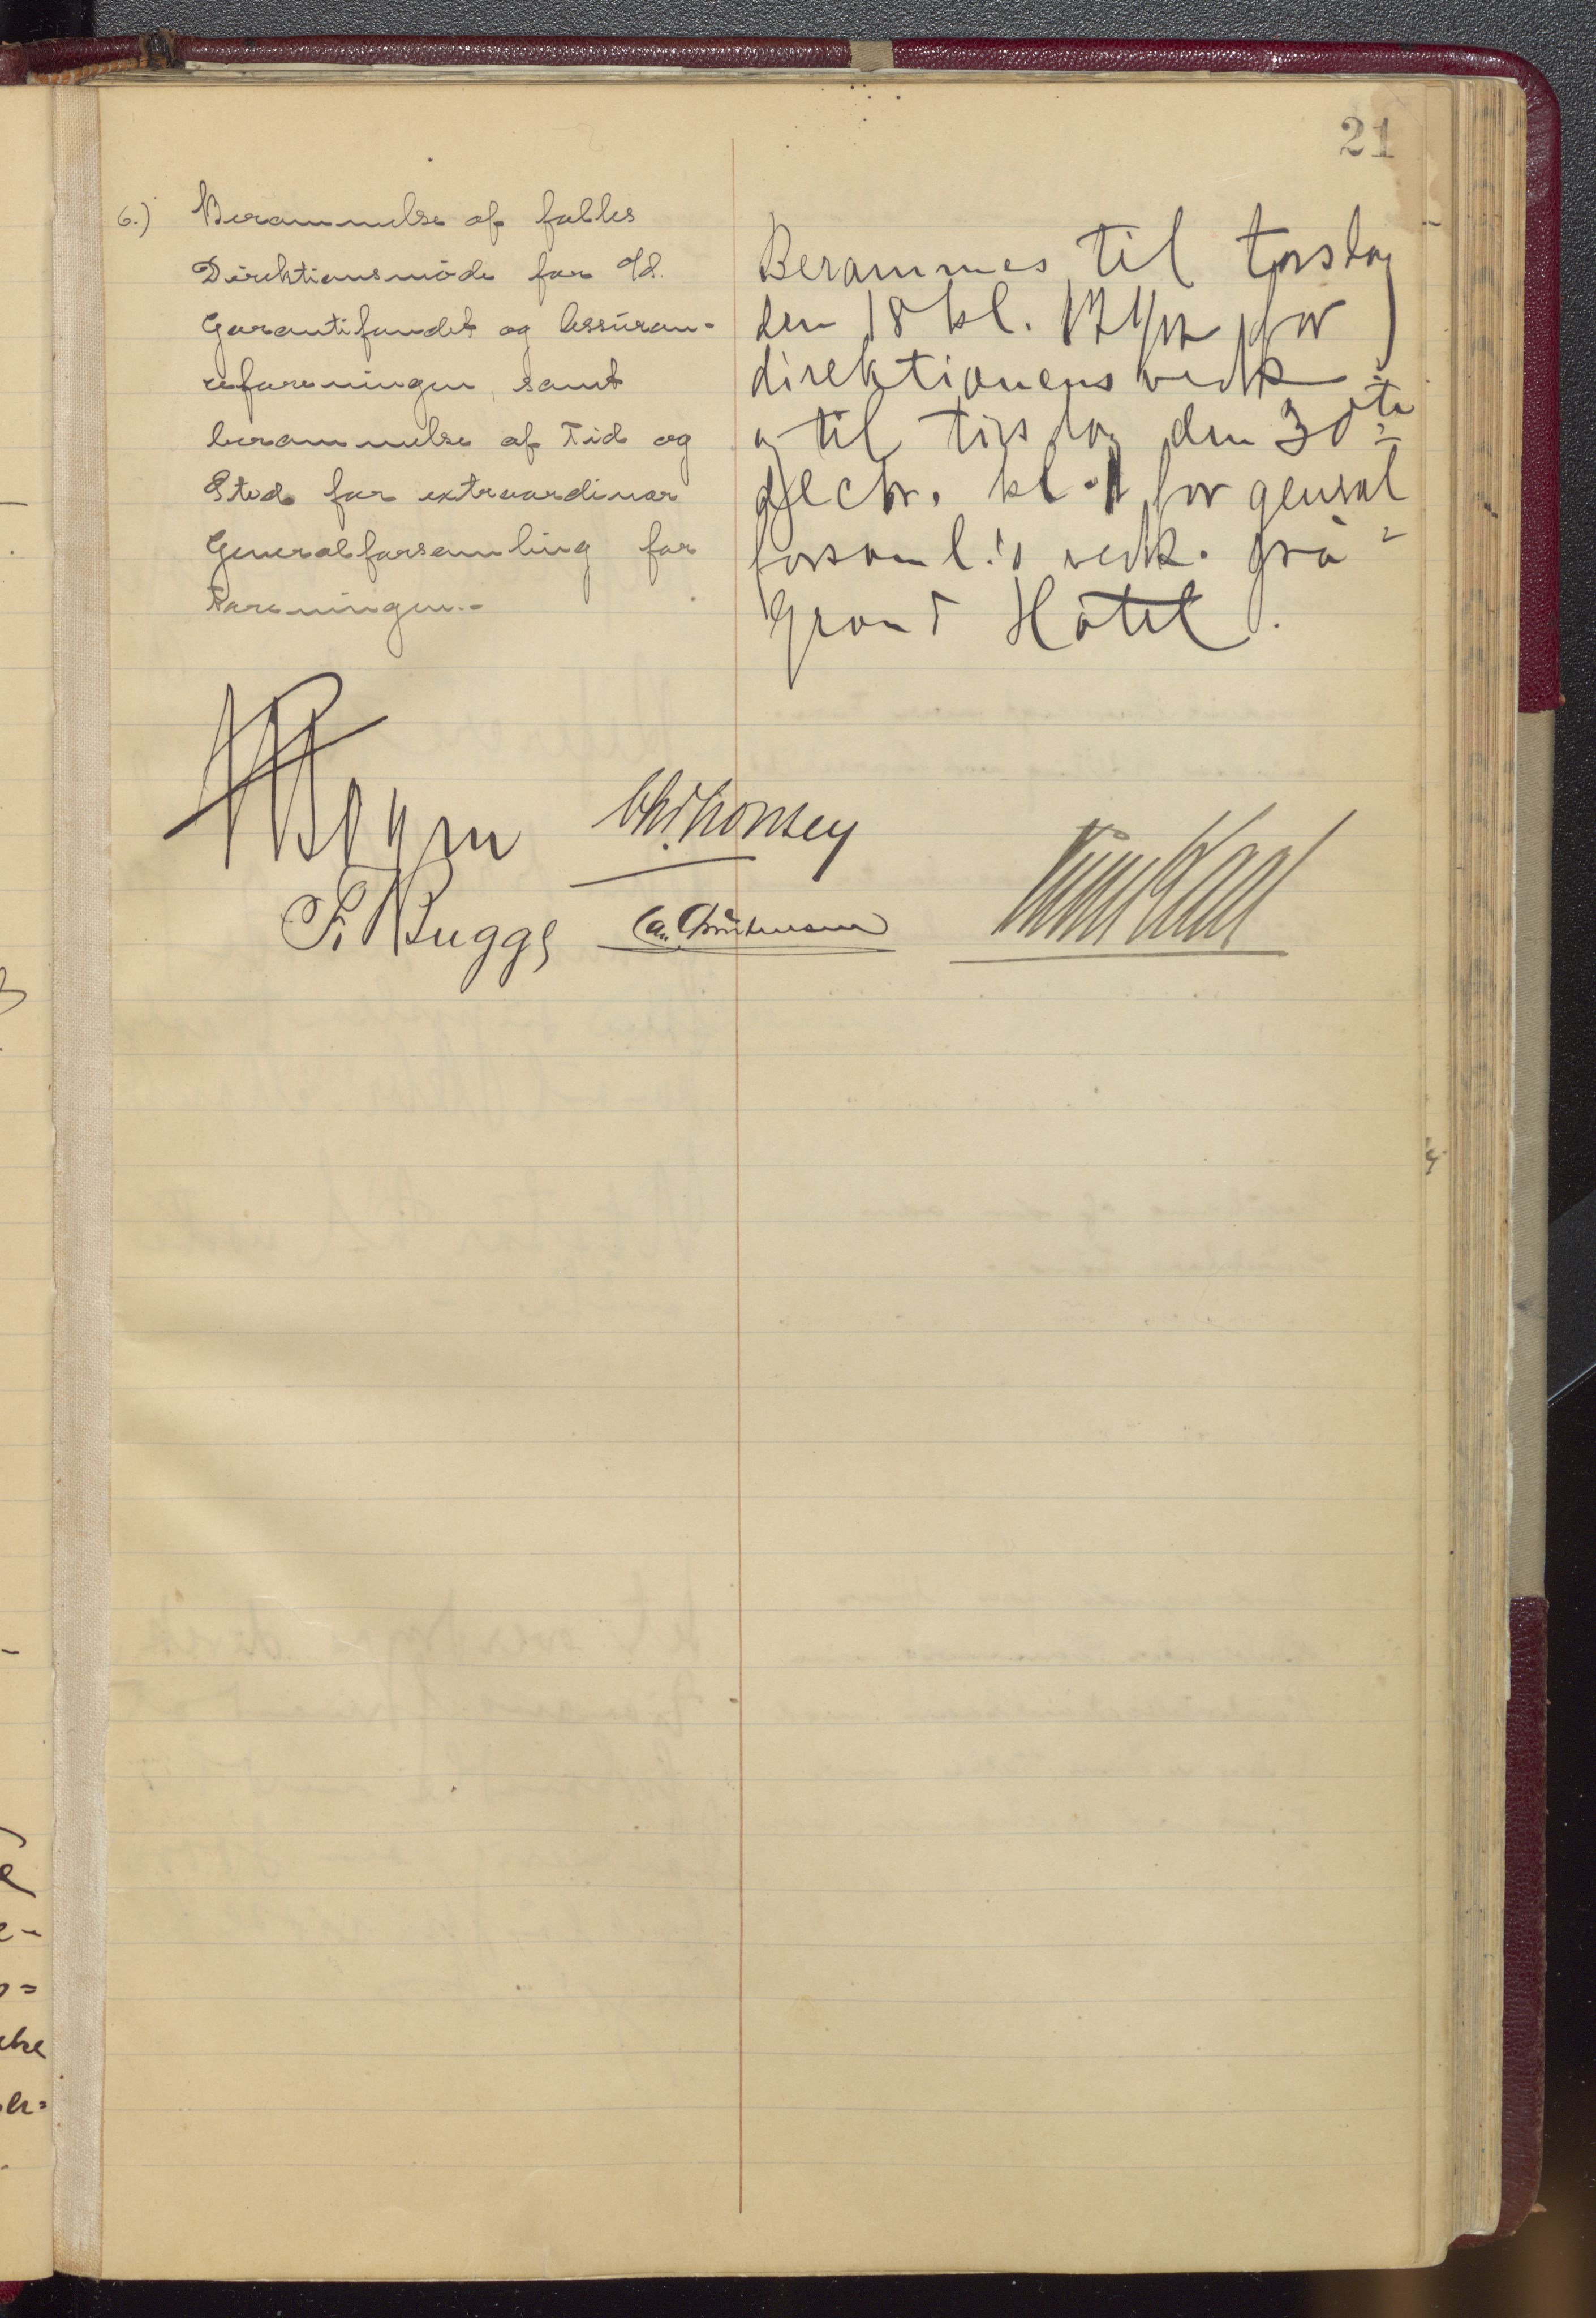 21
6.) Berammelse af fælles
Direktionsmöde for A/S.
Garantifondet og Assuran-
ceforeningen, samt
berammelse af Tid og
Sted for extraordinær
Generalforsamling for
Foreningen.-
Berammes til torsdag
den 18 kl. 12 1/2 for
direktionens vedk.
og til tirsdag den 30te
decbr. kl. 1 for general
forsaml.'s vedk. på
Grand Hôtel.
F. Bugge
Chr. Christensen